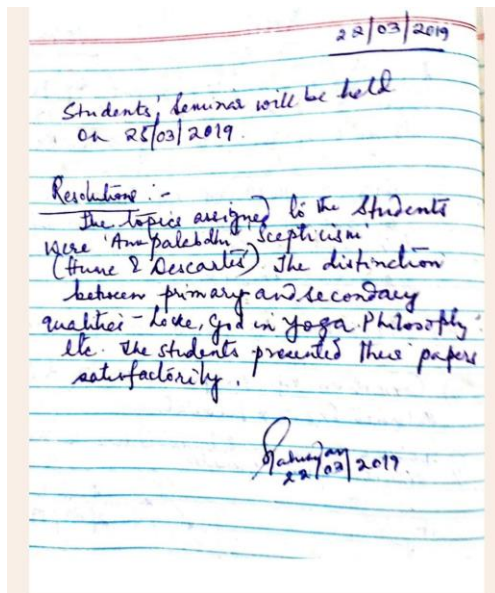 22/03/2019
Students' Seminar will be held
on 25/03/2019.
Resolutions :-
The topics assigned to the Students
were 'Anupalabdhi', 'Scepticism'
(Hume & Descartes). The distinction
between primary and secondary
qualities - Locke, God in Yoga Philosophy
etc. The students presented their papers
satisfactorily.
22/03/2019.